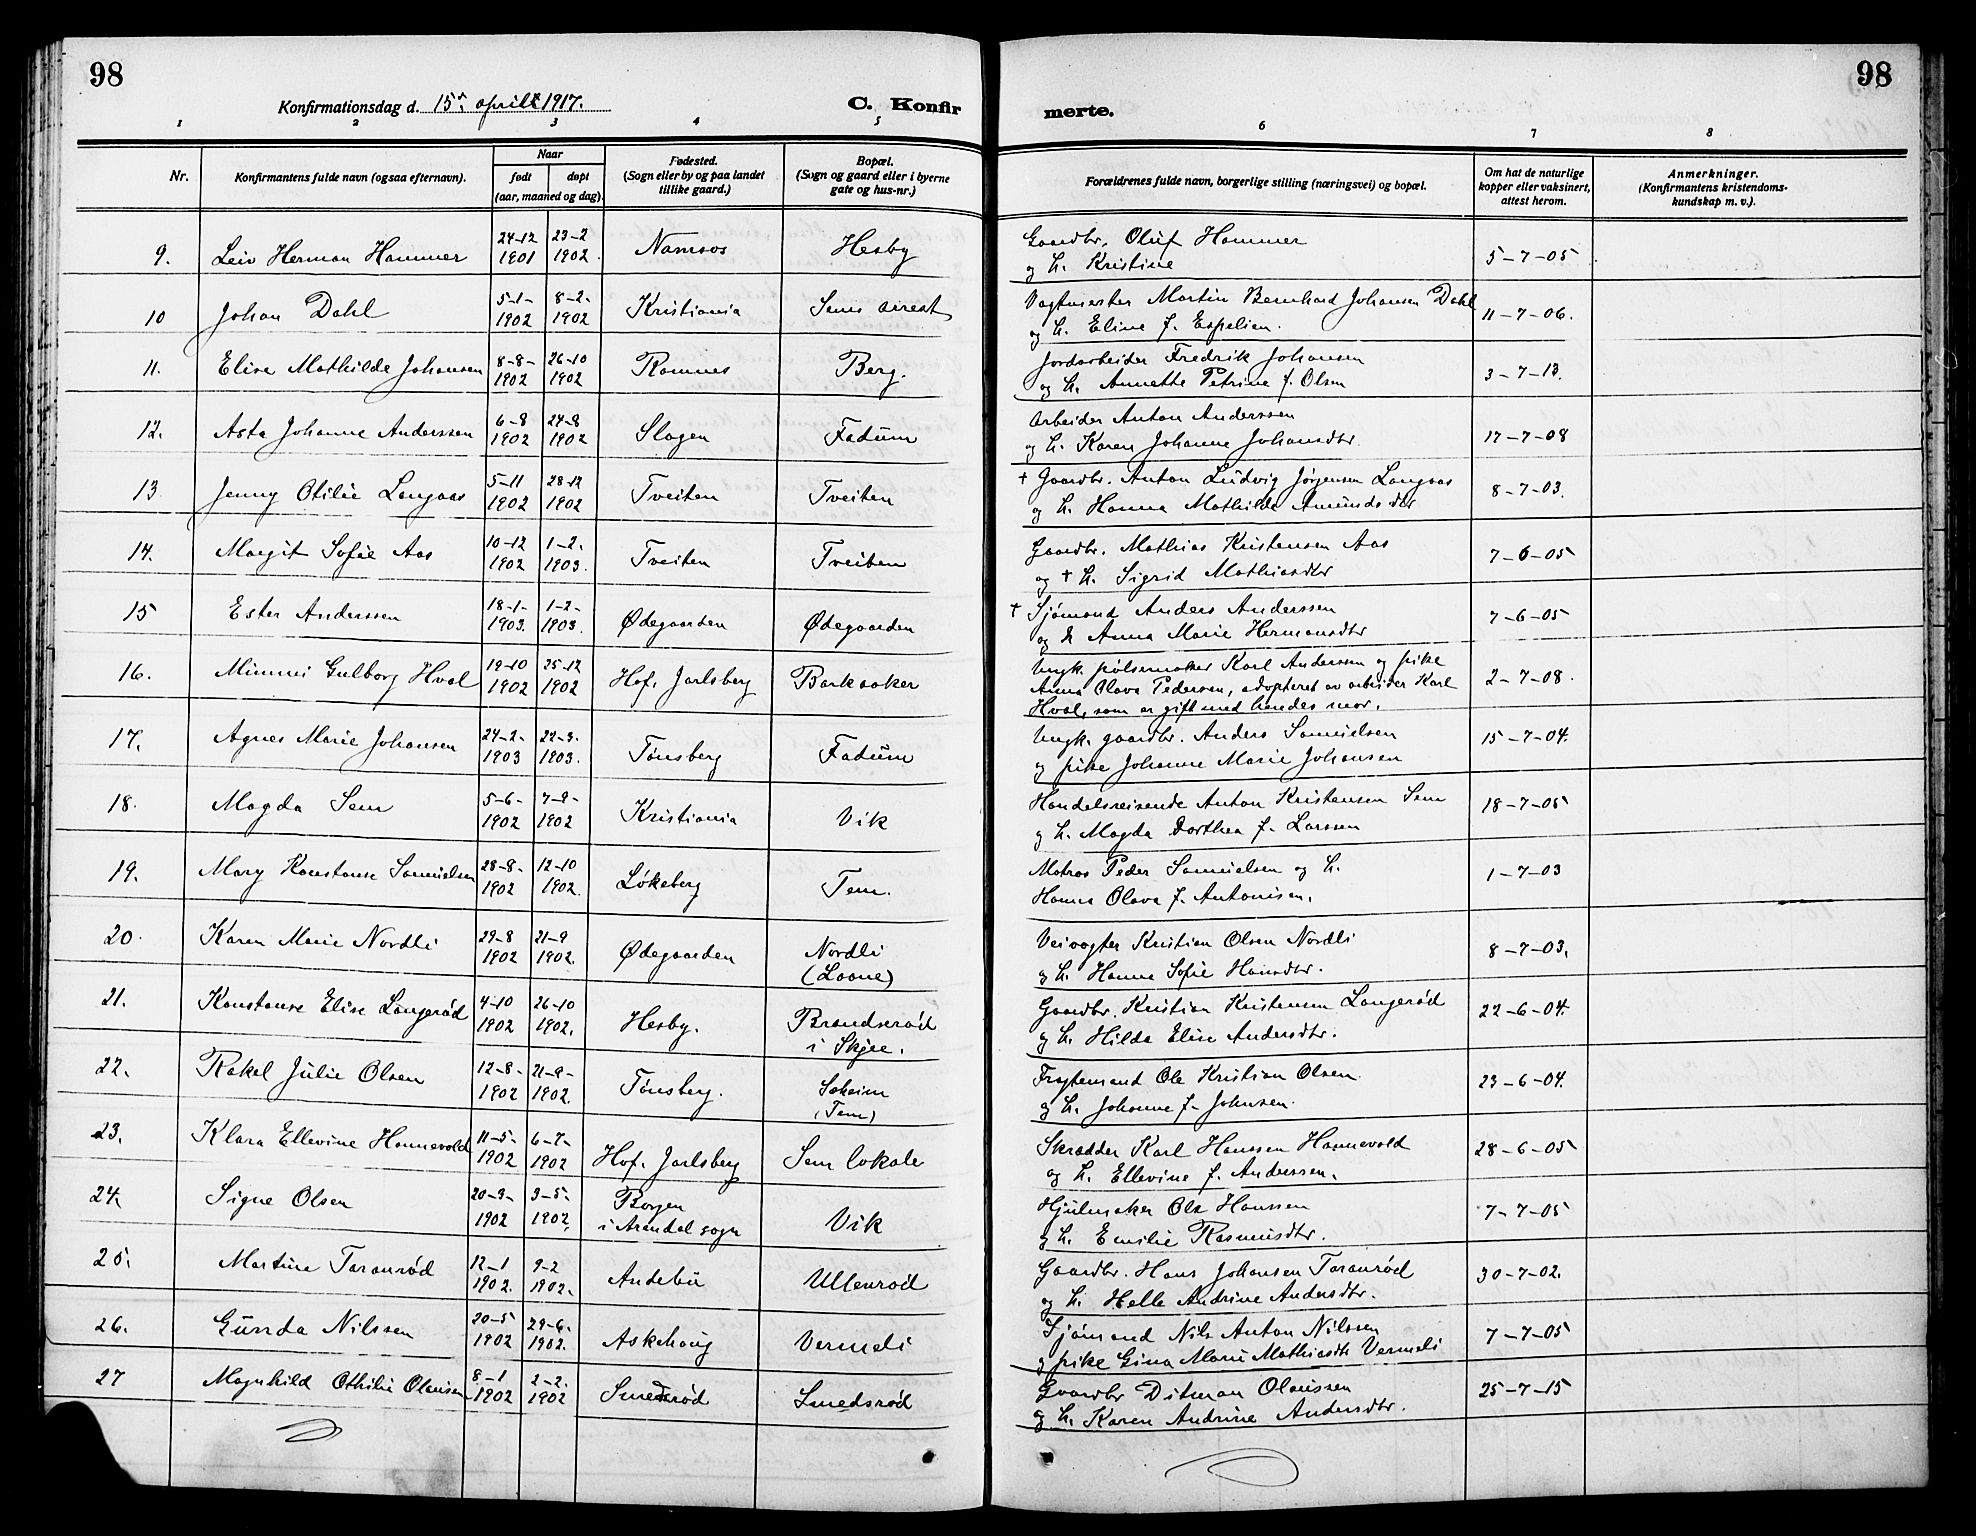 98
98
Konfirmationsdag d. 15de april 1917.
C. Konfir
merte.
1 2 3 4 5 6 7 8
Nr.
Konfirmantens fulde navn (ogsaa efternavn).
Naar
født
døpt
(aar, maaned og dag).
Fødested.
(Sogn eller by og paa landet
tillike gaard.)
Bopæl.
(Sogn og gaard eller i byerne
gate og hus-nr.)
Forældrenes fulde navn, borgerlige stilling (næringsvei) og bopæl.
Om hat de naturlige
kopper eller vaksinert,
attest herom.
Anmerkninger.
(Konfirmantens kristendoms-
kundskap m. v.).
9. Leiv Herman Hammer 24-12 1901 23-2 1902. Namsos Hesby Gaardbr. Oluf Hammer 5-7-05
og h. Kristine
10 Johan Dahl 5-1- 1902 8-2- 1902 Kristiania Sems arrest Vagtmester Martin Bernhard Johansen Dahl 11-7-06.
og h. Eline f. Espelien.
11. Elise Mathilde Johansen 8-8- 1902 26-10 1902 Ramnes Berg. Jordarbeider Fredrik Johansen 3-7-13.
og h. Annette Petrine f. Olsen
12. Asta Johanne Anderssen 6-8 1902 24-8 1902 Slagen Fadum Arbeider Anton Anderssen 17-7-08
og h. Karen Johanne Johansdtr.
13. Jenny Otilie Langaas 5-11 1902 28-12 1902 Tveiten Tveiten + Gaardbr. Anton Ludvig Jørgensen Langaas 8-7-03.
og h. Hanna Mathilde Amundsdtr
14. Margit Sofie Aas 10-12 1902 1-2. 1903. Tveiten Tveiten Gaardbr. Mathias Kristensen Aas 7-6-05
og + h. Sigrid Mathiasdtr
15 Ester Anderssen 18-1- 1903. 1-2- 1903. Ødegaarden Ødegaarden + Sjømand Anders Anderssen 7-6-05
og h Anna Marie Hermansdtr
16. Mimmi Gulborg Hval 19-10 1902 25-12 1902 Hof. Jarlsberg Barkaaker Ungk. pølsemaker Karl Anderssen og pike 2-7-08.
Anna Olava Pedersen, adopteret av arbeider Karl
Hval, som er gift med hendes mor.
17. Agnes Marie Johansen 24-2- 1903 22-3. 1903. Tønsberg Fadum Ungk. gaardbr. Anders Samuelsen 15-7-04.
og pike Johanne Marie Johansen
18. Magda Sem 5-6- 1902 7-9- 1902 Kristiania Vik Handelsreisende Anton Kristensen Sem 18-7-05
og h. Magda Dorthea f. Larssen
19. Mary Konstanse Samuelsen 28-8- 1902 12-10 1902. Løkeberg Tem. Matros Peder Samuelsen og h. 1-7-03
Hanna Olava f. Antonisen.
20. Karen Marie Nordli 29-8 1902 21-9 1902. Ødegaarden Nordli Veivogter Kristian Olsen Nordli 8-7-03.
(Laane) og h. Hanna Sofie Hansdtr.
21. Konstanse Elise Langerød 4-10 1902 26-10 1902. Hesby. Brandsrød Gaardbr. Kristian Kristensen Langerød 22-6-04.
i Skjee. og h. Hilda Elise Andersdtr.
22. Rakel Julie Olsen 12-8- 1902 21-9- 1902. Tønsberg. Solheim Fragtemand Ole Kristian Olsen 23-6-04.
(Tem) og h. Johanne f. Johnsen.
23. Klara Ellevine Hannevold 11-5- 1902 6-7- 1902 Hof. Jarlsberg Sem lokale Skrædder Karl Hanssen Hannevold 28-6-05
og h. Ellevine f. Anderssen.
24. Signe Olsen 20-3- 1902 3-5- 1902. Borgen Vik Hjulmaker Ole Hanssen 7-7-05
i Arendal sogn og h. Emilie Rasmusdtr.
25. Martine Taranrød 12-1 1902. 9-2 1902. Andebu Ullenrød Gaardbr. Hans Johansen Taranrød 30-7-02.
og h. Helle Andrine Andersdtr.
26. Gunda Nilssen 20-5 1902 29-6. 1902. Askehaug Vermeli Sjømand Nils Anton Nilssen 7-7-05
og pike Gina Marie Mathiasdtr Vermeli
27 Magnhild Othilie Olaussen 8-1 1902 2-2. 1902 Smedsrød Smedsrød Gaardbr Ditman Olaussen 25-7-15
og h. Karen Andrine Andersdtr.